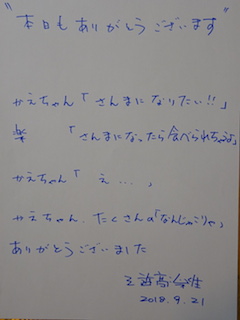 "本日もありがとうございます"
かえちゃん「さんまになりたい!!」
楽 「さんまになったら食べられちゃうよ」
かえちゃん「え...」
かえちゃん、たくさんの「なんじゃこりゃ」
ありがとうございました
2018.9.21